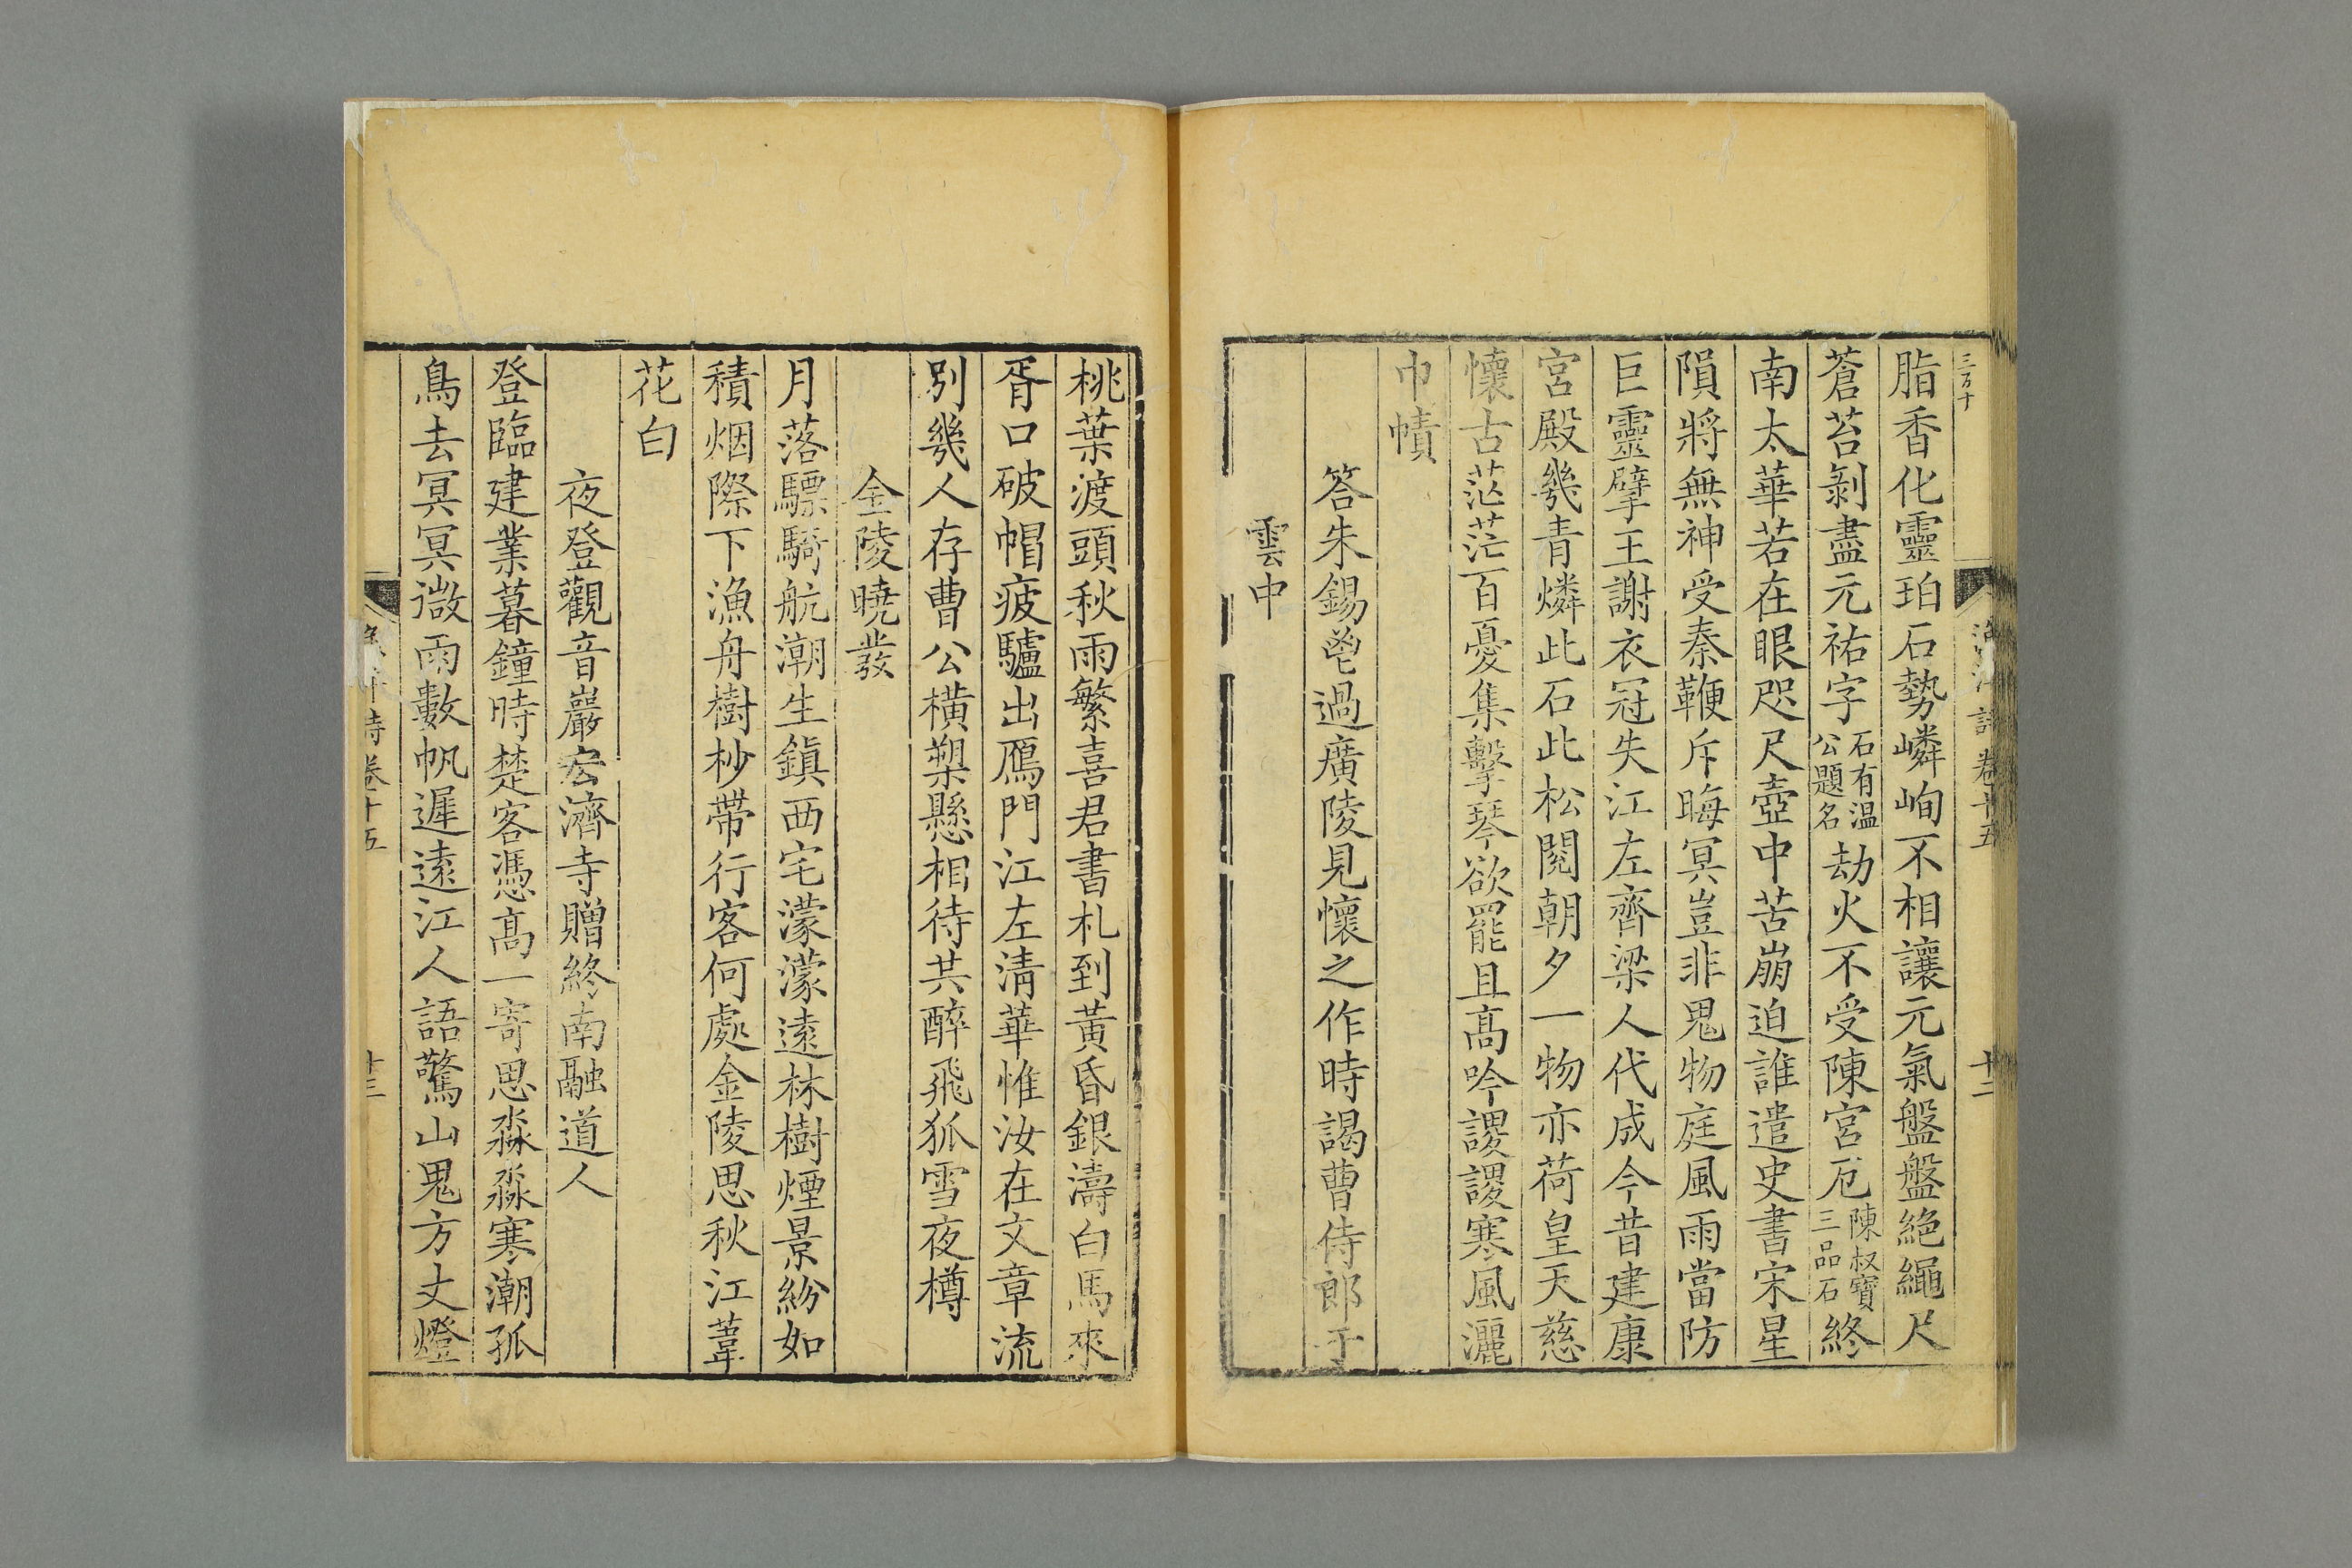 脂香化靈珀石勢嶙峋不相讓元氣盤盤絶繩尺
蒼苔剝盡元祐字石有温公題名劫火不受陳宮厄陳叔寶三品石終
南太華若在眼咫尺壺中苦崩迫誰遣史書宋星
隕將無神受秦鞭斥晦冥豈非鬼物庭風雨當防
巨靈擘王謝衣冠失江左齊梁人代成今昔建康
宮殿幾青燐此石此松閱朝夕一物亦荷皇天慈
懷古茫茫百憂集擊琴欲罷且高吟謖謖寒風灑
巾幘
答朱錫鬯過廣陵見懷之作時謁曹侍郎于
雲中
桃葉渡頭秋雨繁喜君書札到黃昏銀濤白馬來
胥口破帽疲驢出鴈門江左清華惟汝在文章流
別幾人存曹公橫槊懸相待共醉飛狐雪夜樽
金陵曉發
月落驃騎航潮生鎮西宅濛濛遠林樹煙景紛如
積烟際下漁舟樹杪帶行客何處金陵思秋江葦
花白
夜登觀音巖宏濟寺贈終南融道人
登臨建業暮鐘時楚客憑高一寄思淼淼寒潮孤
鳥去冥冥微雨數帆遲遠江人語驚山鬼方丈燈
詩卷十五
十三
卷十五
十二